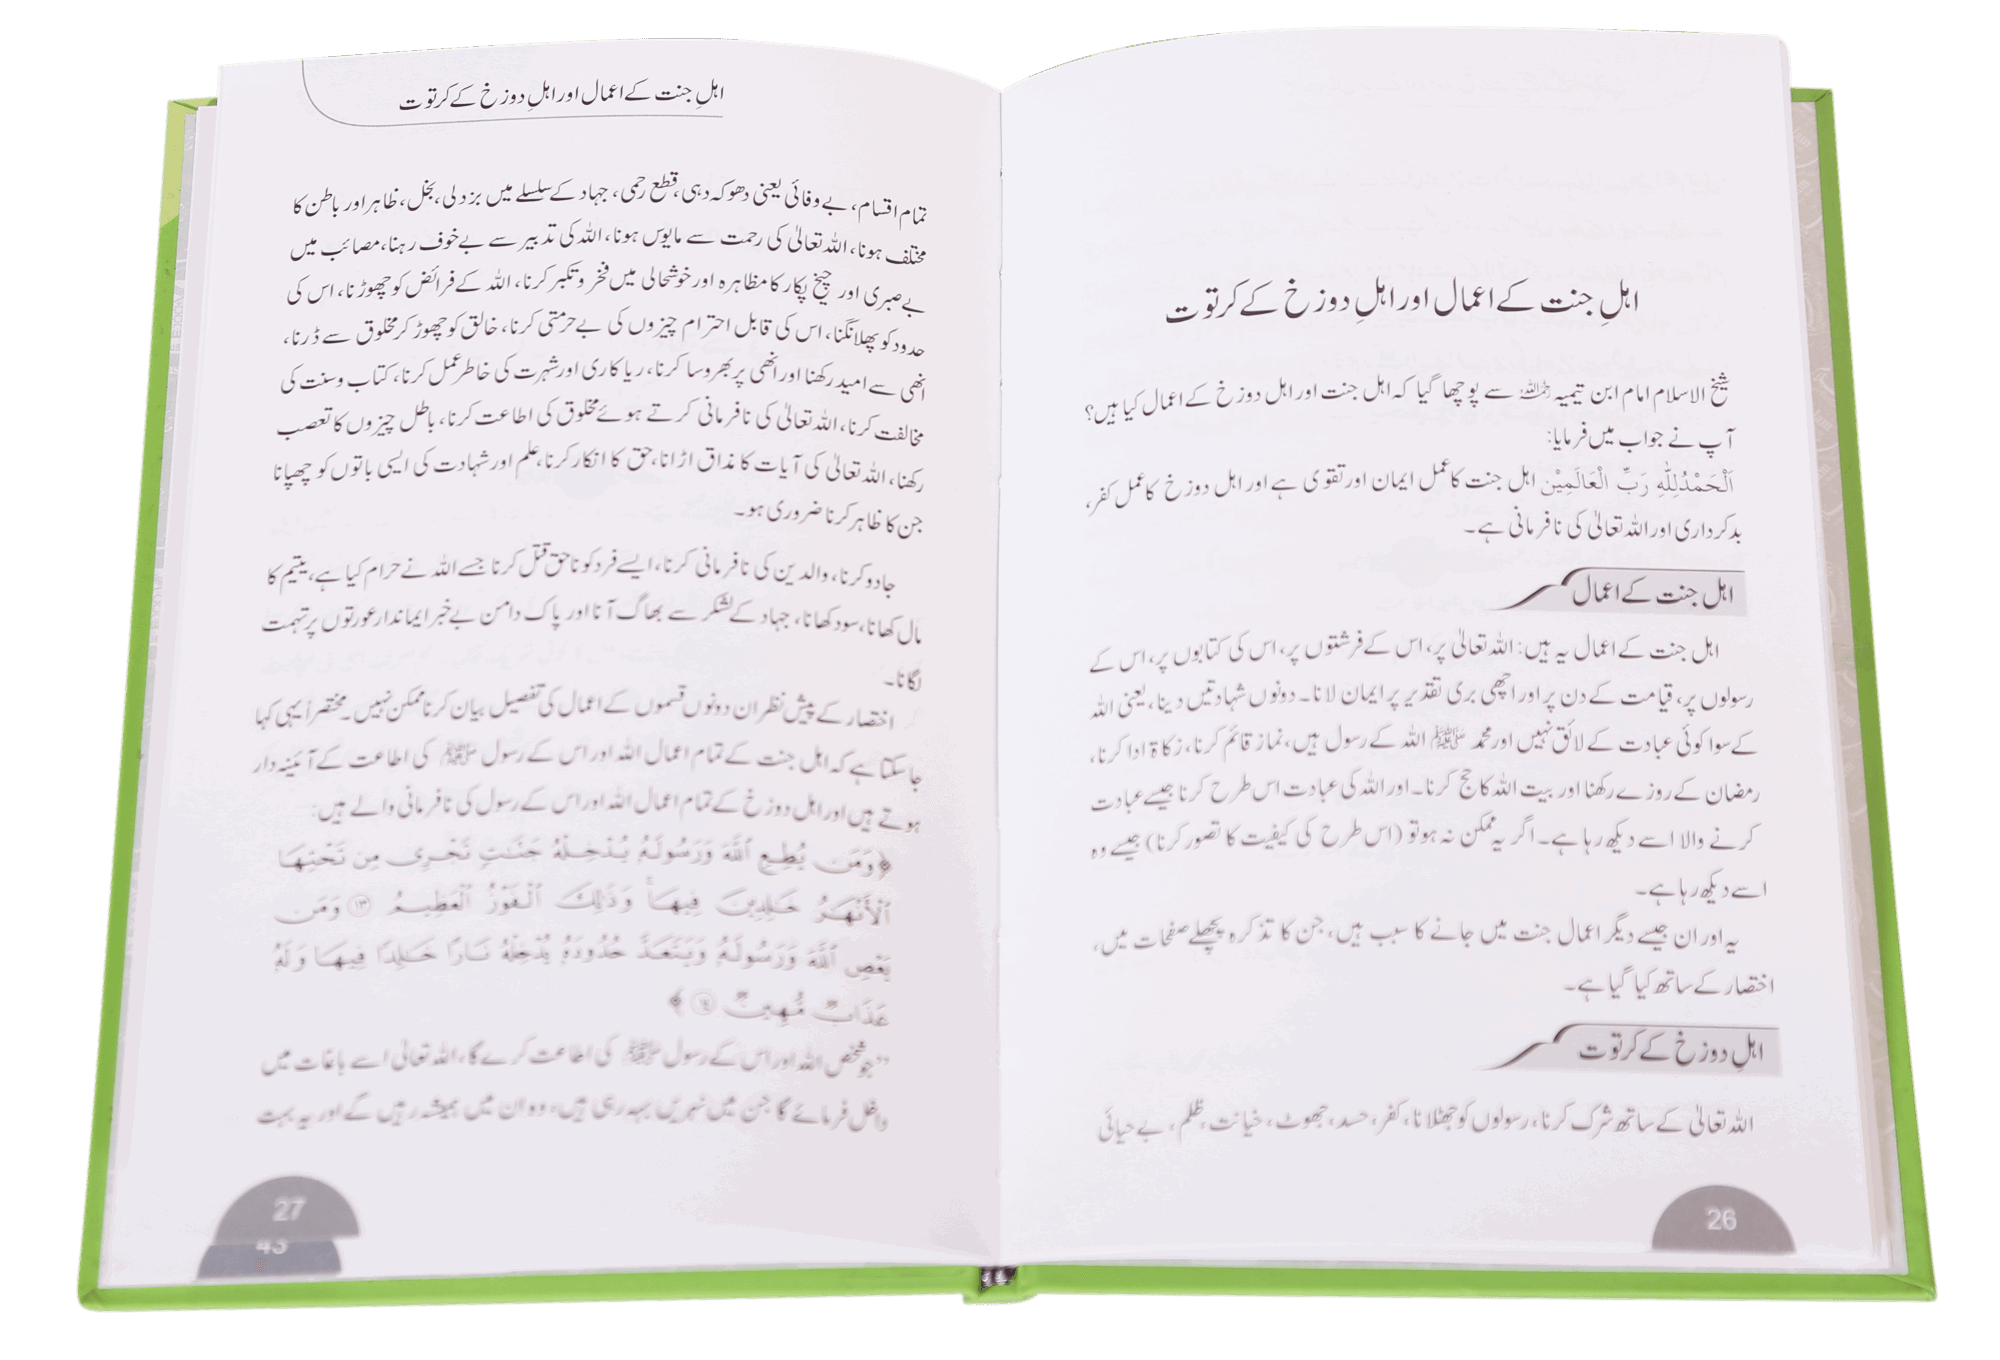 اہلِ جنت کے اعمال اور اہلِ دوزخ کے کرتوت
شیخ الاسلام امام ابن تیمیہ رحمہ اللہ سے پوچھا گیا کہ اہل جنت اور اہل دوزخ کے اعمال کیا ہیں؟
آپ نے جواب میں فرمایا:
اَلْحَمْدُلِلّٰهِ رَبِّ الْعَالَمِيْن اہل جنت کا عمل ایمان اور تقوی ہے اور اہل دوزخ کا عمل کفر،
بدکرداری اور اللہ تعالیٰ کی نافرمانی ہے۔
اہل جنت کے اعمال
اہل جنت کے اعمال یہ ہیں: اللہ تعالیٰ پر، اس کے فرشتوں پر، اس کی کتابوں پر، اس کے
رسولوں پر، قیامت کے دن پر اور اچھی بری تقدیر پر ایمان لانا۔ دونوں شہادتیں دینا، یعنی اللہ
کے سوا کوئی عبادت کے لائق نہیں اور محمد ﷺ اللہ کے رسول ہیں، نماز قائم کرنا، زکاۃ ادا کرنا،
رمضان کے روزے رکھنا اور بیت اللہ کا حج کرنا۔ اور اللہ کی عبادت اس طرح کرنا جیسے عبادت
کرنے والا اسے دیکھ رہا ہے۔ اگر یہ ممکن نہ ہو تو (اس طرح کی کیفیت کا تصور کرنا) جیسے وہ
اسے دیکھ رہا ہے۔
یہ اور ان جیسے دیگر اعمال جنت میں جانے کا سبب ہیں، جن کا تذکرہ پچھلے صفحات میں،
اختصار کے ساتھ کیا گیا ہے۔
اہلِ دوزخ کے کرتوت
اللہ تعالیٰ کے ساتھ شرک کرنا، رسولوں کو جھٹلانا، کفر، حسد، جھوٹ، خیانت، ظلم، بے حیائی
26
اہلِ جنت کے اعمال اور اہلِ دوزخ کے کرتوت
تمام اقسام، بے وفائی یعنی دھوکہ دہی، قطع رحمی، جہاد کے سلسلے میں بزدلی، بخل، ظاہر اور باطن کا
مختلف ہونا، اللہ تعالیٰ کی رحمت سے مایوس ہونا، اللہ کی تدبیر سے بے خوف رہنا، مصائب میں
بے صبری اور چیخ پکار کا مظاہرہ اور خوشحالی میں فخر و تکبر کرنا، اللہ کے فرائض کو چھوڑنا، اس کی
حدود کو پھلانگنا، اس کی قابل احترام چیزوں کی بے حرمتی کرنا، خالق کو چھوڑ کر مخلوق سے ڈرنا،
انھی سے امید رکھنا اور انھی پر بھروسا کرنا، ریاکاری اور شہرت کی خاطر عمل کرنا، کتاب و سنت کی
مخالفت کرنا، اللہ تعالیٰ کی نافرمانی کرتے ہوئے مخلوق کی اطاعت کرنا، باطل چیزوں کا تعصب
رکھنا، اللہ تعالیٰ کی آیات کا مذاق اڑانا، حق کا انکار کرنا، علم اور شہادت کی ایسی باتوں کو چھپانا
جن کا ظاہر کرنا ضروری ہو۔
جادو کرنا، والدین کی نافرمانی کرنا، ایسے فرد کو ناحق قتل کرنا جسے اللہ نے حرام کیا ہے، یتیم کا
مال کھانا، سود کھانا، جہاد کے لشکر سے بھاگ آنا اور پاک دامن بے خبر ایماندار عورتوں پر تہمت
لگانا۔
اختصار کے پیش نظر ان دونوں قسموں کے اعمال کی تفصیل بیان کرنا ممکن نہیں۔ مختصراً یہی کہا
جا سکتا ہے کہ اہل جنت کے تمام اعمال اللہ اور اس کے رسول ﷺ کی اطاعت کے آئینہ دار
ہوتے ہیں اور اہل دوزخ کے تمام اعمال اللہ اور اس کے رسول کی نافرمانی والے ہیں:
﴿وَمَن يُطِعِ ٱللَّهَ وَرَسُولَهُۥ يُدْخِلْهُ جَنَّٰتٍ تَجْرِى مِن تَحْتِهَا
ٱلْأَنْهَٰرُ خَٰلِدِينَ فِيهَا ۚ وَذَٰلِكَ ٱلْفَوْزُ ٱلْعَظِيمُ ١٣ وَمَن
يَعْصِ ٱللَّهَ وَرَسُولَهُۥ وَيَتَعَدَّ حُدُودَهُۥ يُدْخِلْهُ نَارًا خَٰلِدًا فِيهَا وَلَهُۥ
عَذَابٌ مُّهِينٌ ١٤﴾
”جو شخص اللہ اور اس کے رسول ﷺ کی اطاعت کرے گا، اللہ تعالیٰ اسے باغات میں
داخل فرمائے گا جن میں نہریں بہہ رہی ہیں، وہ ان میں ہمیشہ رہیں گے اور یہ بہت
27
43